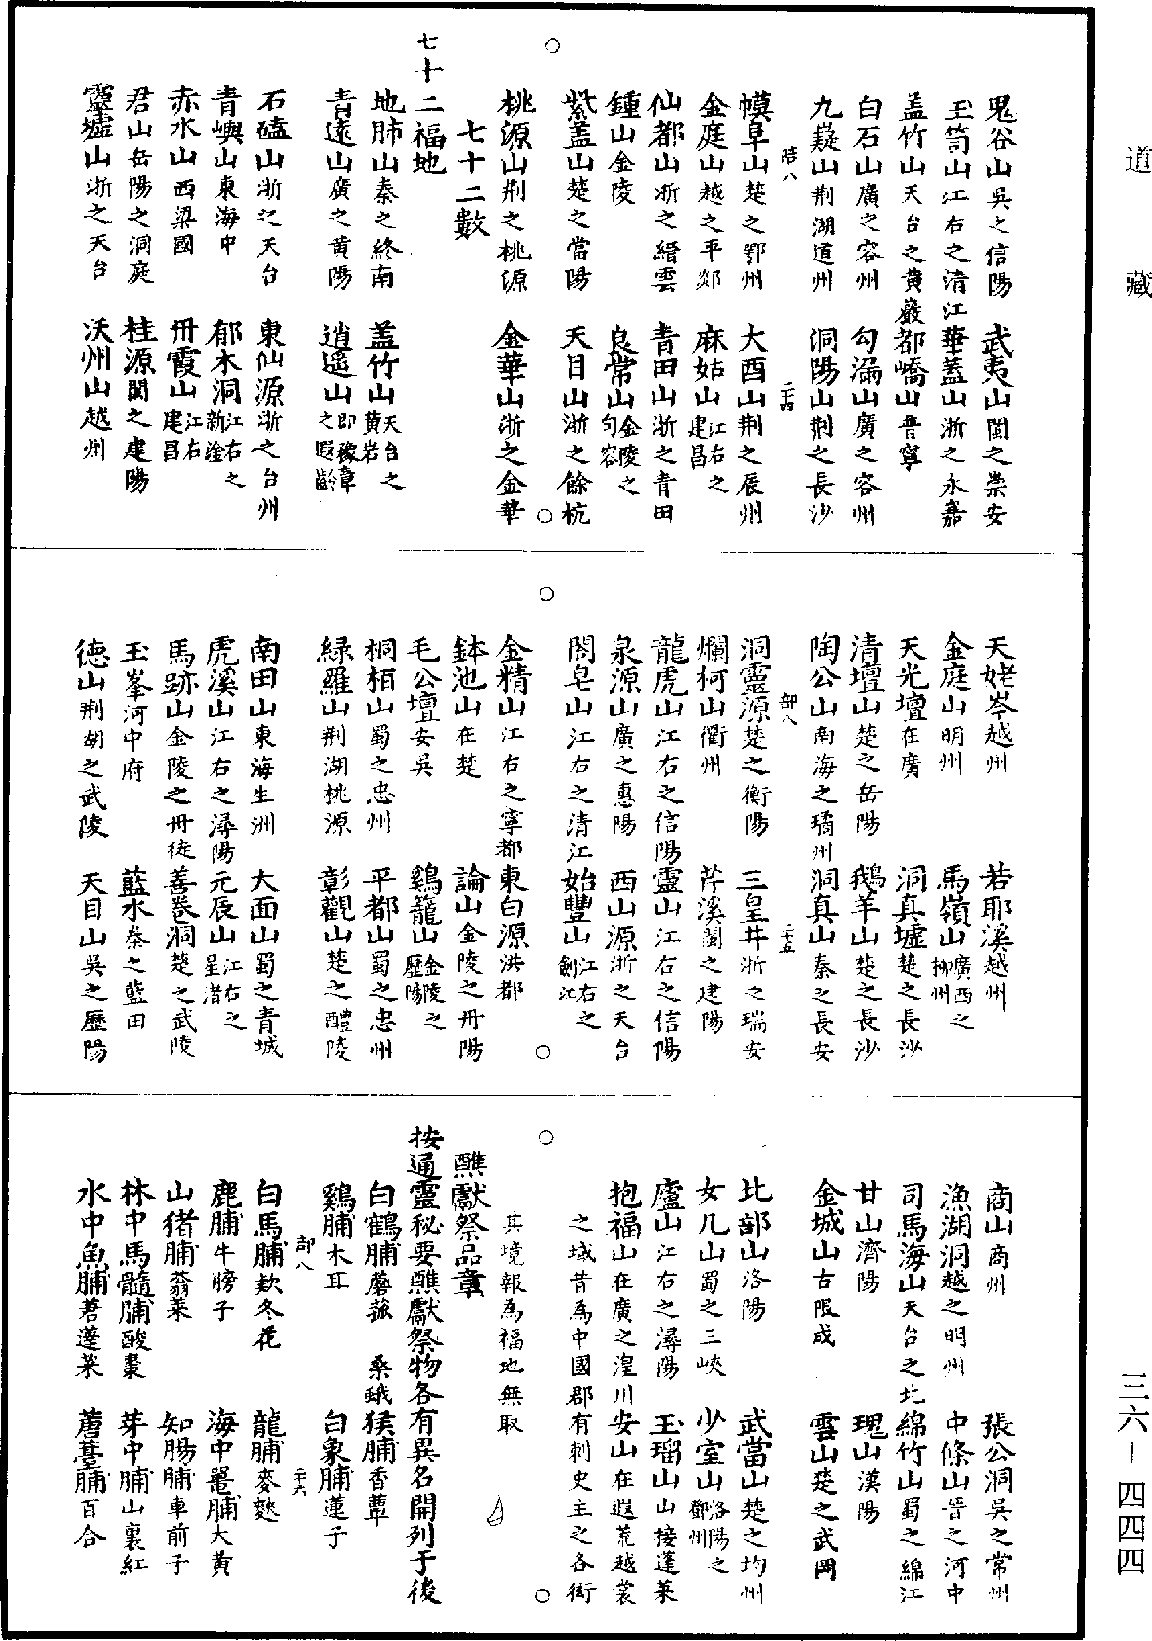 道藏
三六-四四四
鬼谷山吳之信陽 武夷山閩之崇安
玉笥山江右之清江華蓋山浙之永嘉
蓋竹山天台之黄巖都嶠山普寧
白石山廣之容州 勾漏山廣之容州
九嶷山荆湖道州 洞陽山荆之長沙
陪八 二十四
幞阜山楚之鄂州 大酉山荆之辰州
金庭山越之平郯 麻姑山江右之建昌
仙都山浙之縉雲 青田山浙之青田
鍾山金陵 良常山金陵之句容
紫蓋山楚之當陽 天目山浙之餘杭
桃源山荆之桃源 金華山浙之金華
七十二數
七十二福地
地肺山秦之終南 蓋竹山天台之黄岩
青遠山廣之黄陽 逍遥山即豫章之暇齡
石磕山浙之天台 東仙源浙之台州
青嶼山東海中 郁木洞江右之新淦
赤水山西梁國 丹霞山江右建昌
君山岳陽之洞庭 桂源閩之建陽
靈墟山浙之天台 沃州山越州
天姥岑越州 若耶溪越州
金庭山明州 馬嶺山廣西之柳州
天光壇在廣 洞真墟楚之長沙
清壇山楚之岳陽 鵝羊山楚之長沙
陶公山南海之璚州洞真山秦之長安
部八 二十五
洞靈源楚之衡陽 三皇井浙之瑞安
爛柯山衢州 芹溪閩之建陽
龍虎山江右之信陽靈山江右之信陽
泉源山廣之惠陽 西山源浙之天台
閤皂山江右之清江始豐山江右之劍江
金精山江右之寧都東白源洪都
鉢池山在楚 論山金陵之丹陽
毛公壇安吳 鷄籠山金陵之歷陽
桐栢山蜀之忠州 平都山蜀之忠州
緑羅山荆湖桃源 彰觀山楚之醴陵
南田山東海生洲 大面山蜀之青城
虎溪山江右之潯陽元辰山江右之星渚
馬跡山金陵之丹徒善卷洞楚之武陵
玉峯河中府 藍水秦之藍田
德山荆胡之武陵 天目山吳之歷陽
商山商州 張公洞吳之常州
漁湖洞越之明州 中條山晉之河中
司馬海山天台之北綿竹山蜀之綿江
甘山濟陽 瑰山漢陽
金城山古限戍 雲山楚之武岡
北部山洛陽 武當山楚之均州
女几山蜀之三峽 少室山洛陽之鄧州
廬山江右之潯陽 玉瑠山山接蓬萊
抱福山在廣之湟川安山在遐荒越裳
之域昔為中國郡有刺史主之各銜
其境報為福地無取
醮獻祭品章
按通靈秘要醮獻祭物各有異名開列于後
白鶴脯蘑菰 桑蛾 猨脯香蕈
鷄脯木耳 白象脯蓮子
部八 二十六
白馬脯欵冬花 龍脯麥麩
鹿脯牛膀子 海中鼉脯大黄
山猪脯蓊菜 知腸脯車前子
林中馬髓脯酸棗 芽中脯山裏紅
水中魚脯莙薘菜 薦薹脯百合